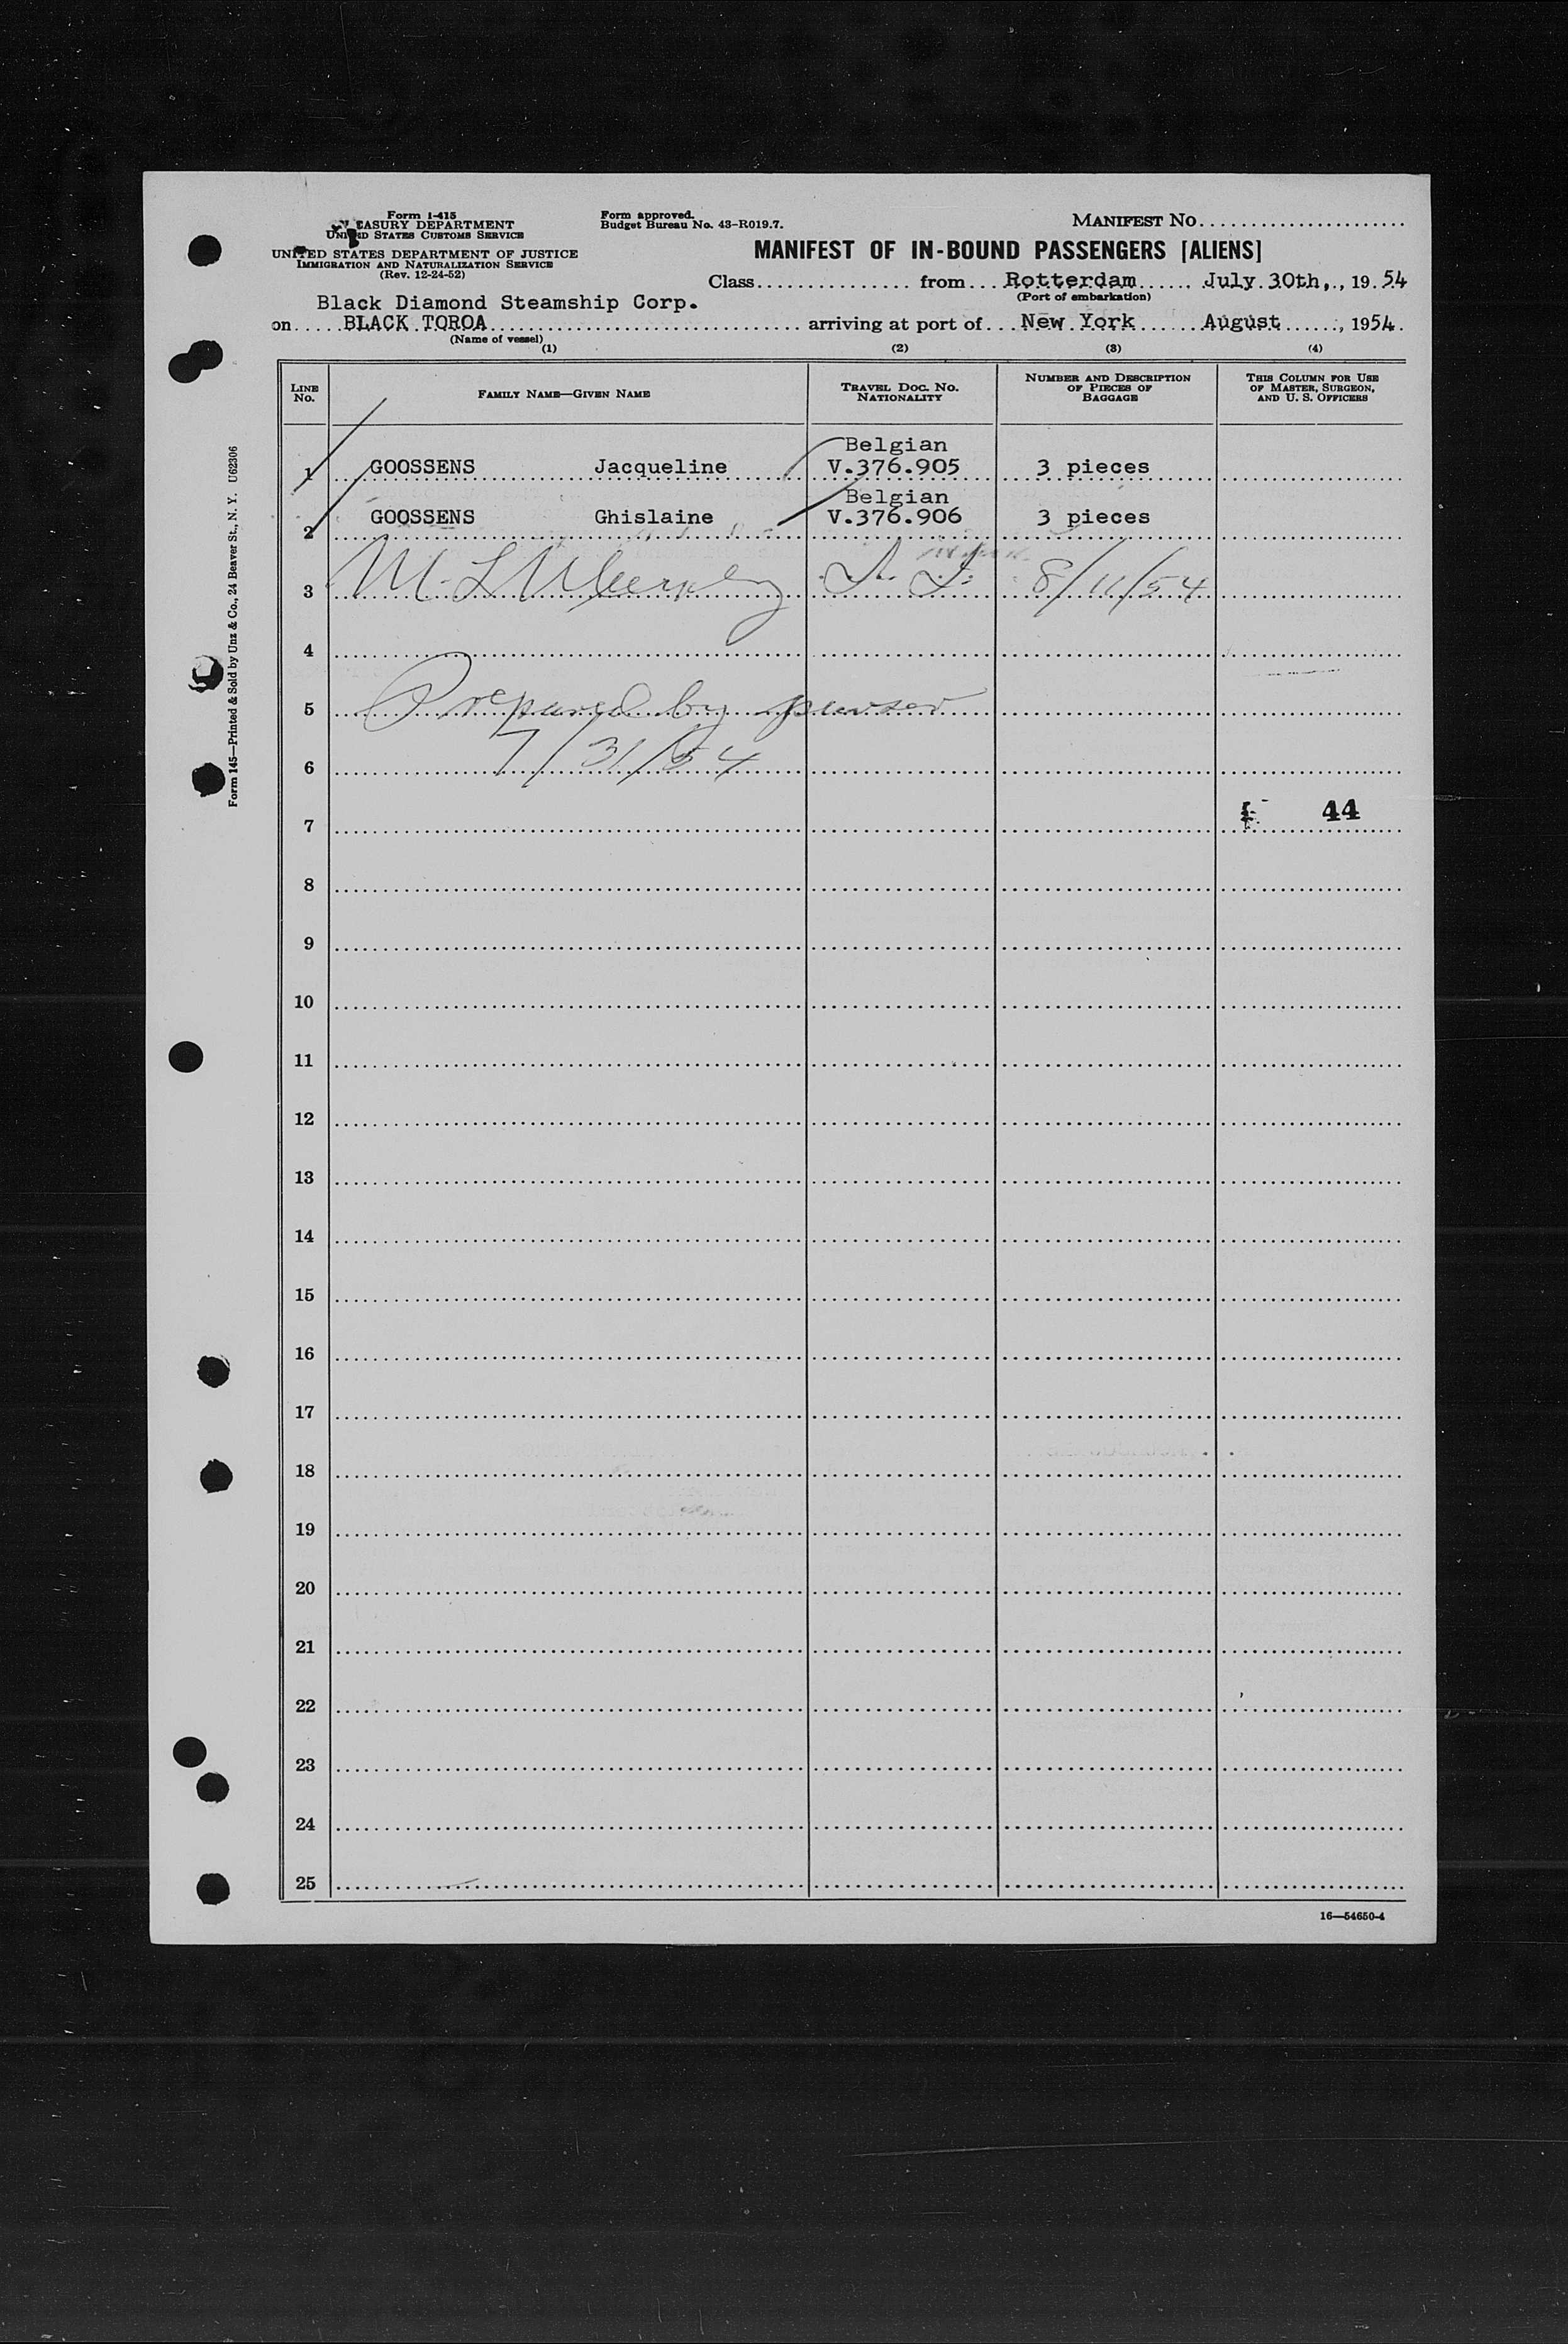 Form I-415
TREASURY DEPARTMENT
UNITED STATES CUSTOMS SERVICE
UNITED STATES DEPARTMENT OF JUSTICE
IMMIGRATION AND NATURALIZATION SERVICE
(Rev. 12-24-52)
Form approved.
Budget Bureau No. 43-R019.7.
MANIFEST NO.
MANIFEST OF IN-BOUND PASSENGERS [ALIENS]
Class from Rotterdam July 30th,, 1954
(Port of embarkation)
Black Diamond Steamship Corp.
on BLACK TOROA arriving at port of New York August , 1954.
(Name of vessel)
(1) (2) (3) (4)
LINE NO. FAMILY NAME—GIVEN NAME TRAVEL DOC. NO. NATIONALITY NUMBER AND DESCRIPTION OF PIECES OF BAGGAGE THIS COLUMN FOR USE OF MASTER, SURGEON, AND U. S. OFFICERS
Belgian
1 GOOSSENS Jacqueline V.376.905 3 pieces
Belgian
2 GOOSSENS Ghislaine V.376.906 3 pieces
3 M. L. 8/11/54
4
5 Prepared by purser
6 7/31/54
7 44
8
9
10
11
12
13
14
15
16
17
18
19
20
21
22
23
24
25
16—54650-4
Form 145—Printed & Sold by Unz & Co., 24 Beaver St., N. Y. U62306